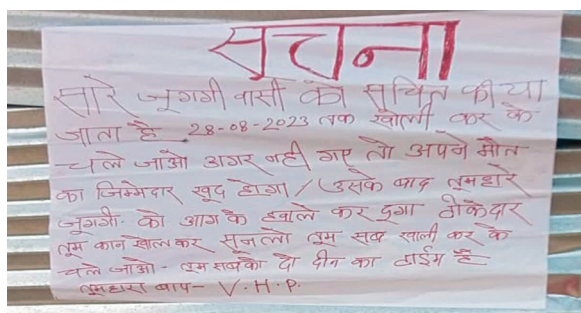 सूचना
सारे जुगगी वासी को सुचित कीया
जाता है 28-08-2023 तक खाली कर के
चले जाओ अगर नही गए तो अपने मौत
का जिम्मेदार खूद होगा / उसके बाद तुमहारे
जुगगी को आग के हवाले कर दुगा ठीकेदार
तुम कान खोलकर सुनलो तुम सब खाली कर के
चले जाओ - तुम सबको दो दीन का टाईम है
तुमहारा बाप - V.H.P.